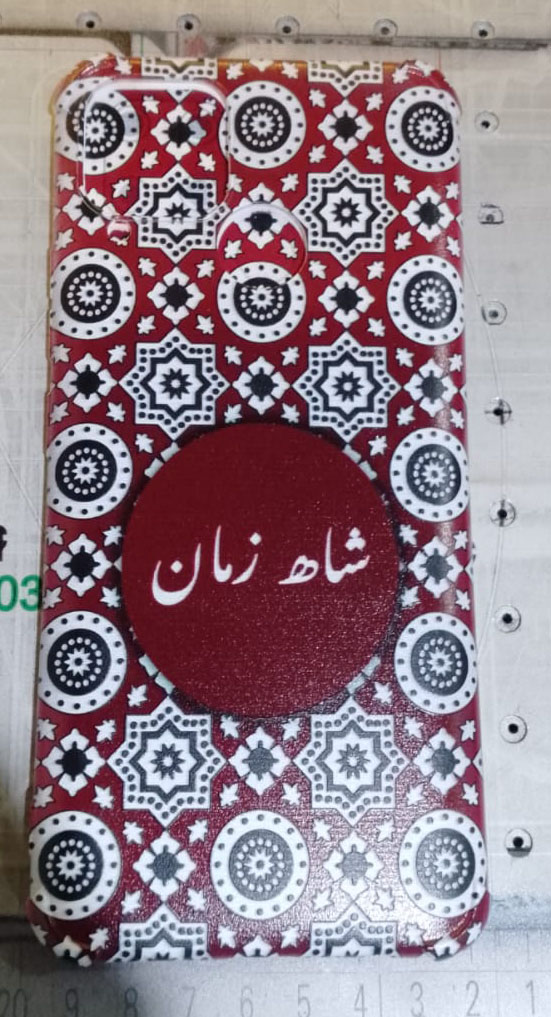 شاھ زمان
f
03
20 9 8 7 6 5 4 3 2 1